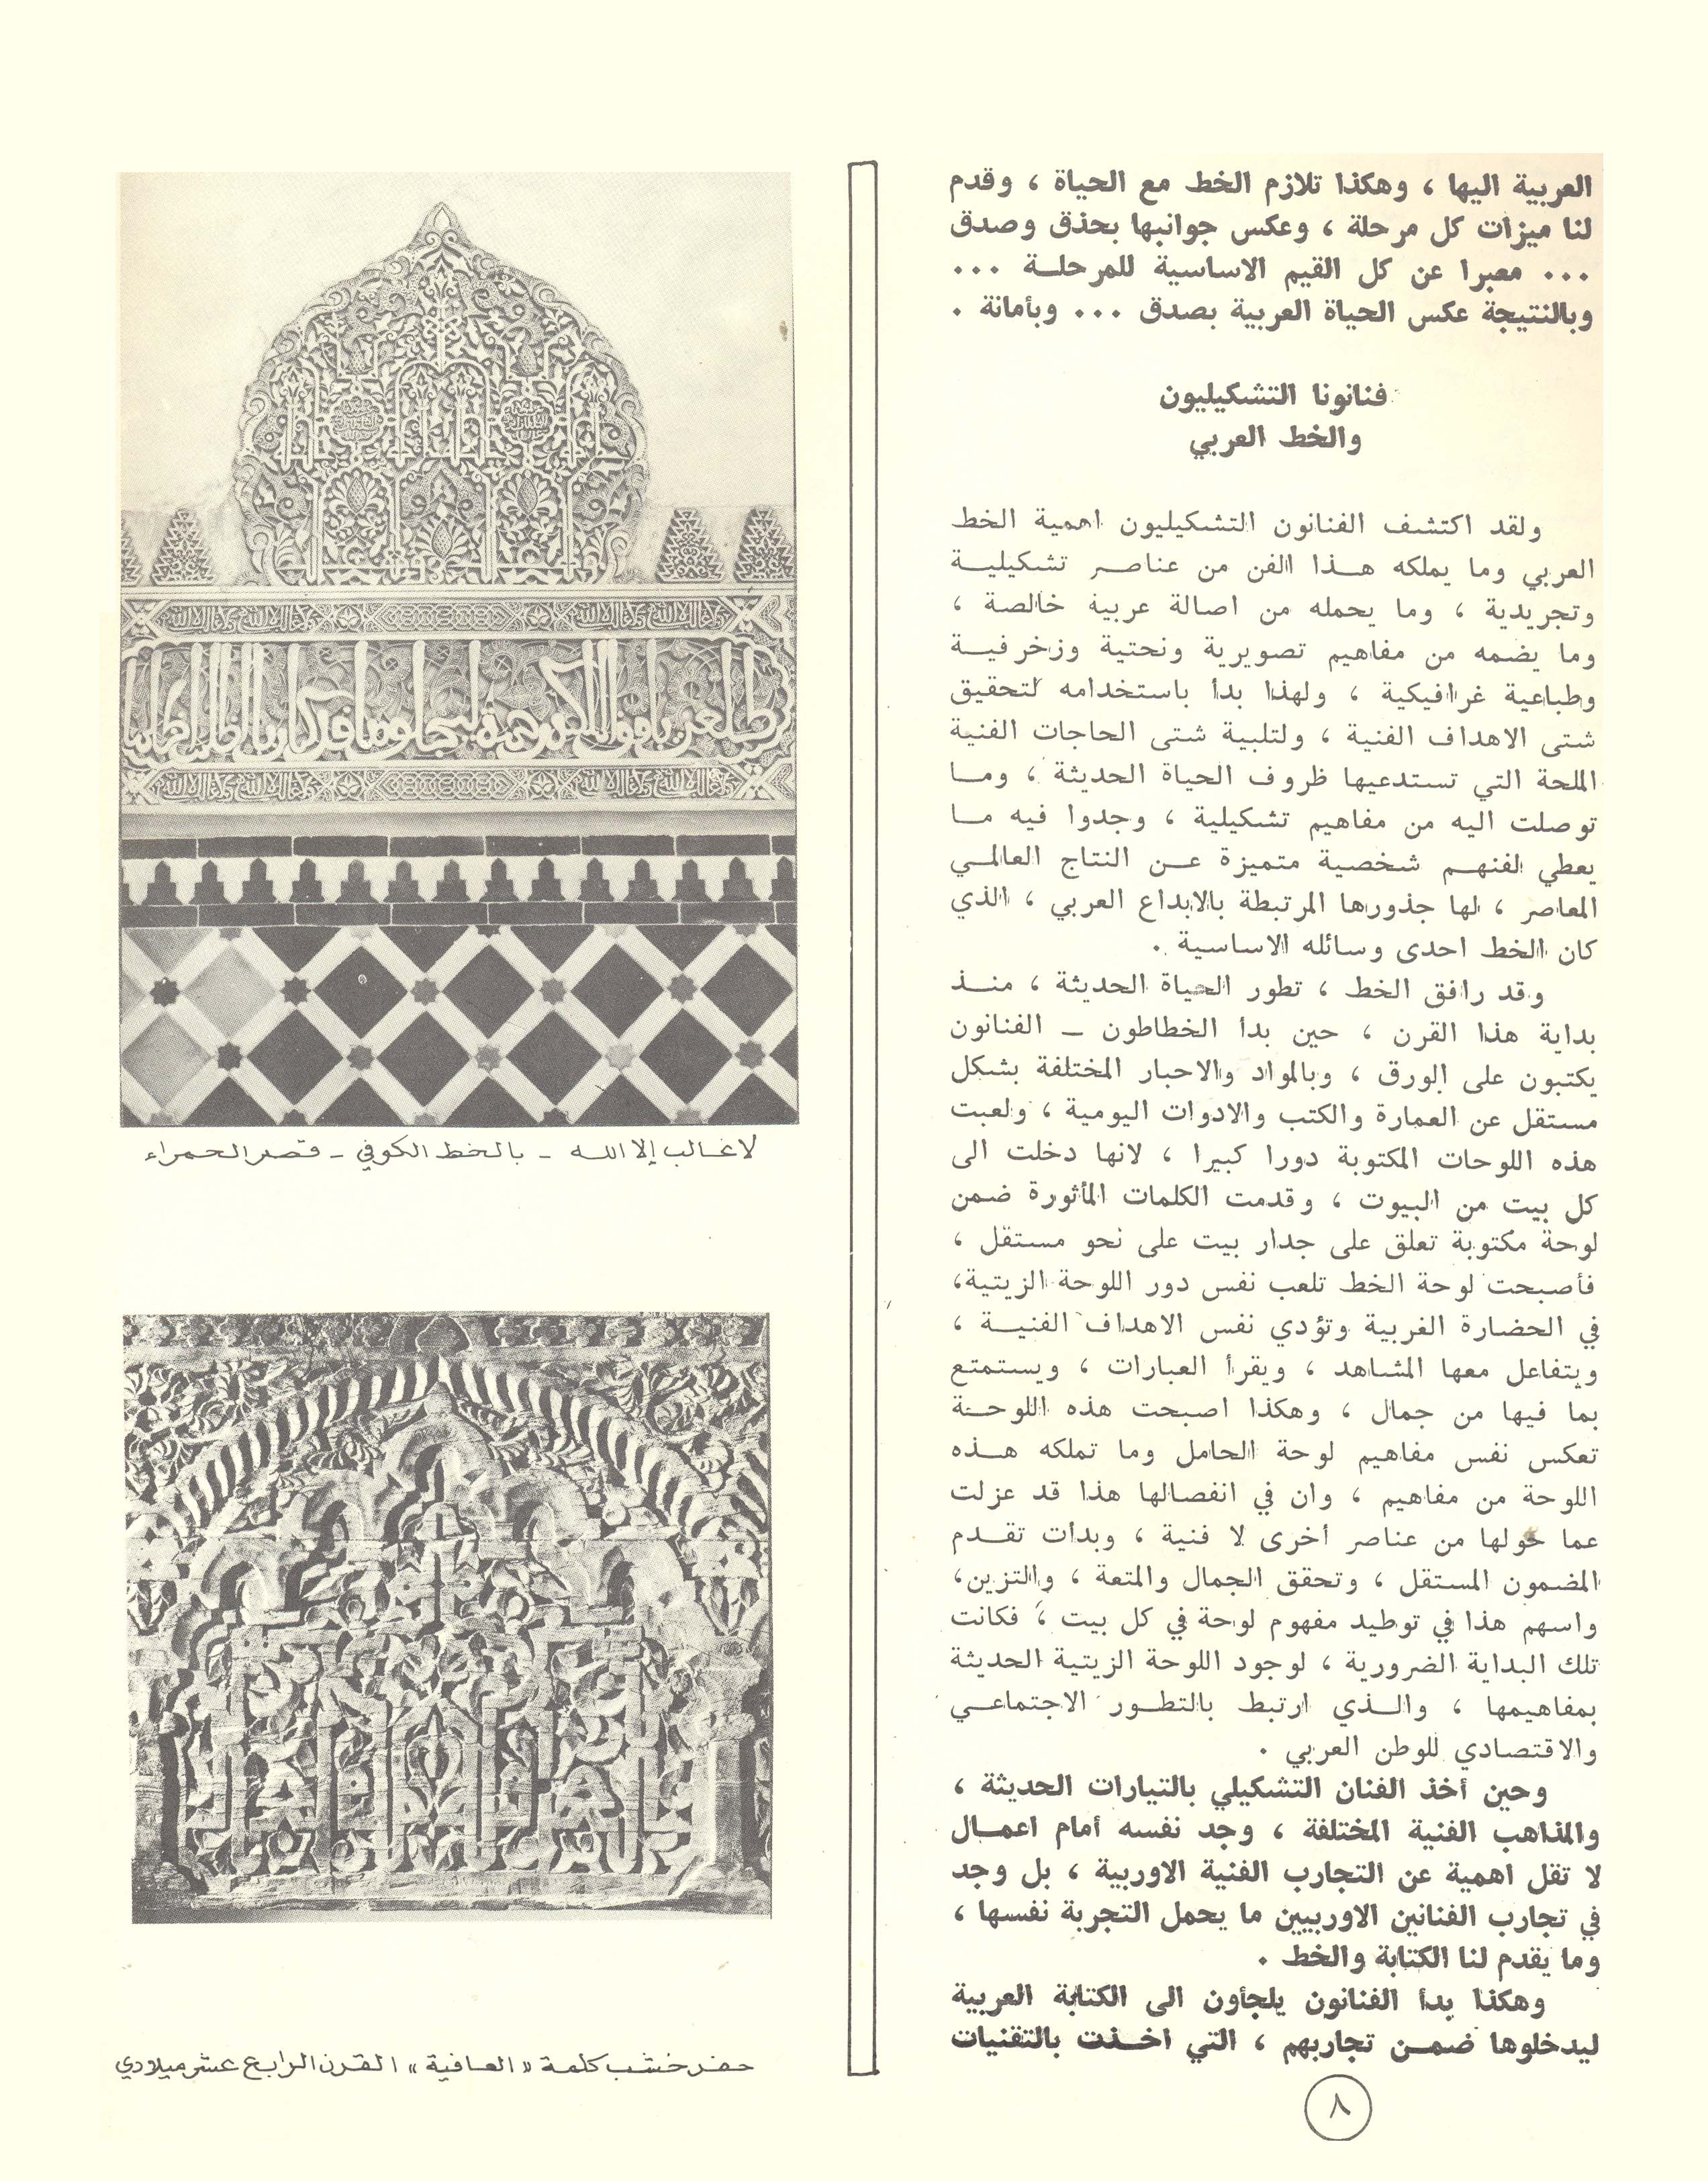 العربية اليها ، وهكذا تلازم الخط مع الحياة ، وقدم
لنا ميزات كل مرحلة ، وعكس جوانبها بحذق وصدق
... معبرا عن كل القيم الاساسية للمرحلة ...
وبالنتيجة عكس الحياة العربية بصدق ... وبأمانة .
فنانونا التشكيليون
والخط العربي
ولقد اكتشف الفنانون التشكيليون اهمية الخط
العربي وما يملكه هذا الفن من عناصر تشكيلية
وتجريدية ، وما يحمله من اصالة عربية خالصة ،
وما يضمه من مفاهيم تصويرية ونحتية وزخرفية
وطباعية غرافيكية ، ولهذا بدأ باستخدامه لتحقيق
شتى الاهداف الفنية ، ولتلبية شتى الحاجات الفنية
الملحة التي تستدعيها ظروف الحياة الحديثة ، وما
توصلت اليه من مفاهيم تشكيلية ، وجدوا فيه ما
يعطي لفنهم شخصية متميزة عن النتاج العالمي
المعاصر ، لها جذورها المرتبطة بالابداع العربي ، الذي
كان الخط احدى وسائله الاساسية .
وقد رافق الخط ، تطور الحياة الحديثة ، منذ
بداية هذا القرن ، حين بدأ الخطاطون – الفنانون
يكتبون على الورق ، وبالمواد والاحبار المختلفة بشكل
مستقل عن العمارة والكتب والادوات اليومية ، ولعبت
هذه اللوحات المكتوبة دورا كبيرا ، لانها دخلت الى
كل بيت من البيوت ، وقدمت الكلمات المأثورة ضمن
لوحة مكتوبة تعلق على جدار بيت على نحو مستقل ،
فأصبحت لوحة الخط تلعب نفس دور اللوحة الزيتية،
في الحضارة الغربية وتؤدي نفس الاهداف الفنية ،
ويتفاعل معها المشاهد ، ويقرأ العبارات ، ويستمتع
بما فيها من جمال ، وهكذا اصبحت هذه اللوحة
تعكس نفس مفاهيم لوحة الحامل وما تملكه هذه
اللوحة من مفاهيم ، وان في انفصالها هذا قد عزلت
عما حولها من عناصر أخرى لا فنية ، وبدأت تقدم
المضمون المستقل ، وتحقق الجمال والمتعة ، والتزين،
واسهم هذا في توطيد مفهوم لوحة في كل بيت ، فكانت
تلك البداية الضرورية ، لوجود اللوحة الزيتية الحديثة
بمفاهيمها ، والذي ارتبط بالتطور الاجتماعي
والاقتصادي للوطن العربي .
وحين أخذ الفنان التشكيلي بالتيارات الحديثة ،
والمذاهب الفنية المختلفة ، وجد نفسه أمام اعمال
لا تقل اهمية عن التجارب الفنية الاوربية ، بل وجد
في تجارب الفنانين الاوربيين ما يحمل التجربة نفسها ،
وما يقدم لنا الكتابة والخط .
وهكذا بدأ الفنانون يلجأون الى الكتابة العربية
ليدخلوها ضمن تجاربهم ، التي اخذت بالتقنيات
٨
لا غالب إلا الله - بالخط الكوفي - قصر الحمراء
حفر خشب كلمة «العافية» القرن الرابع عشر ميلادي